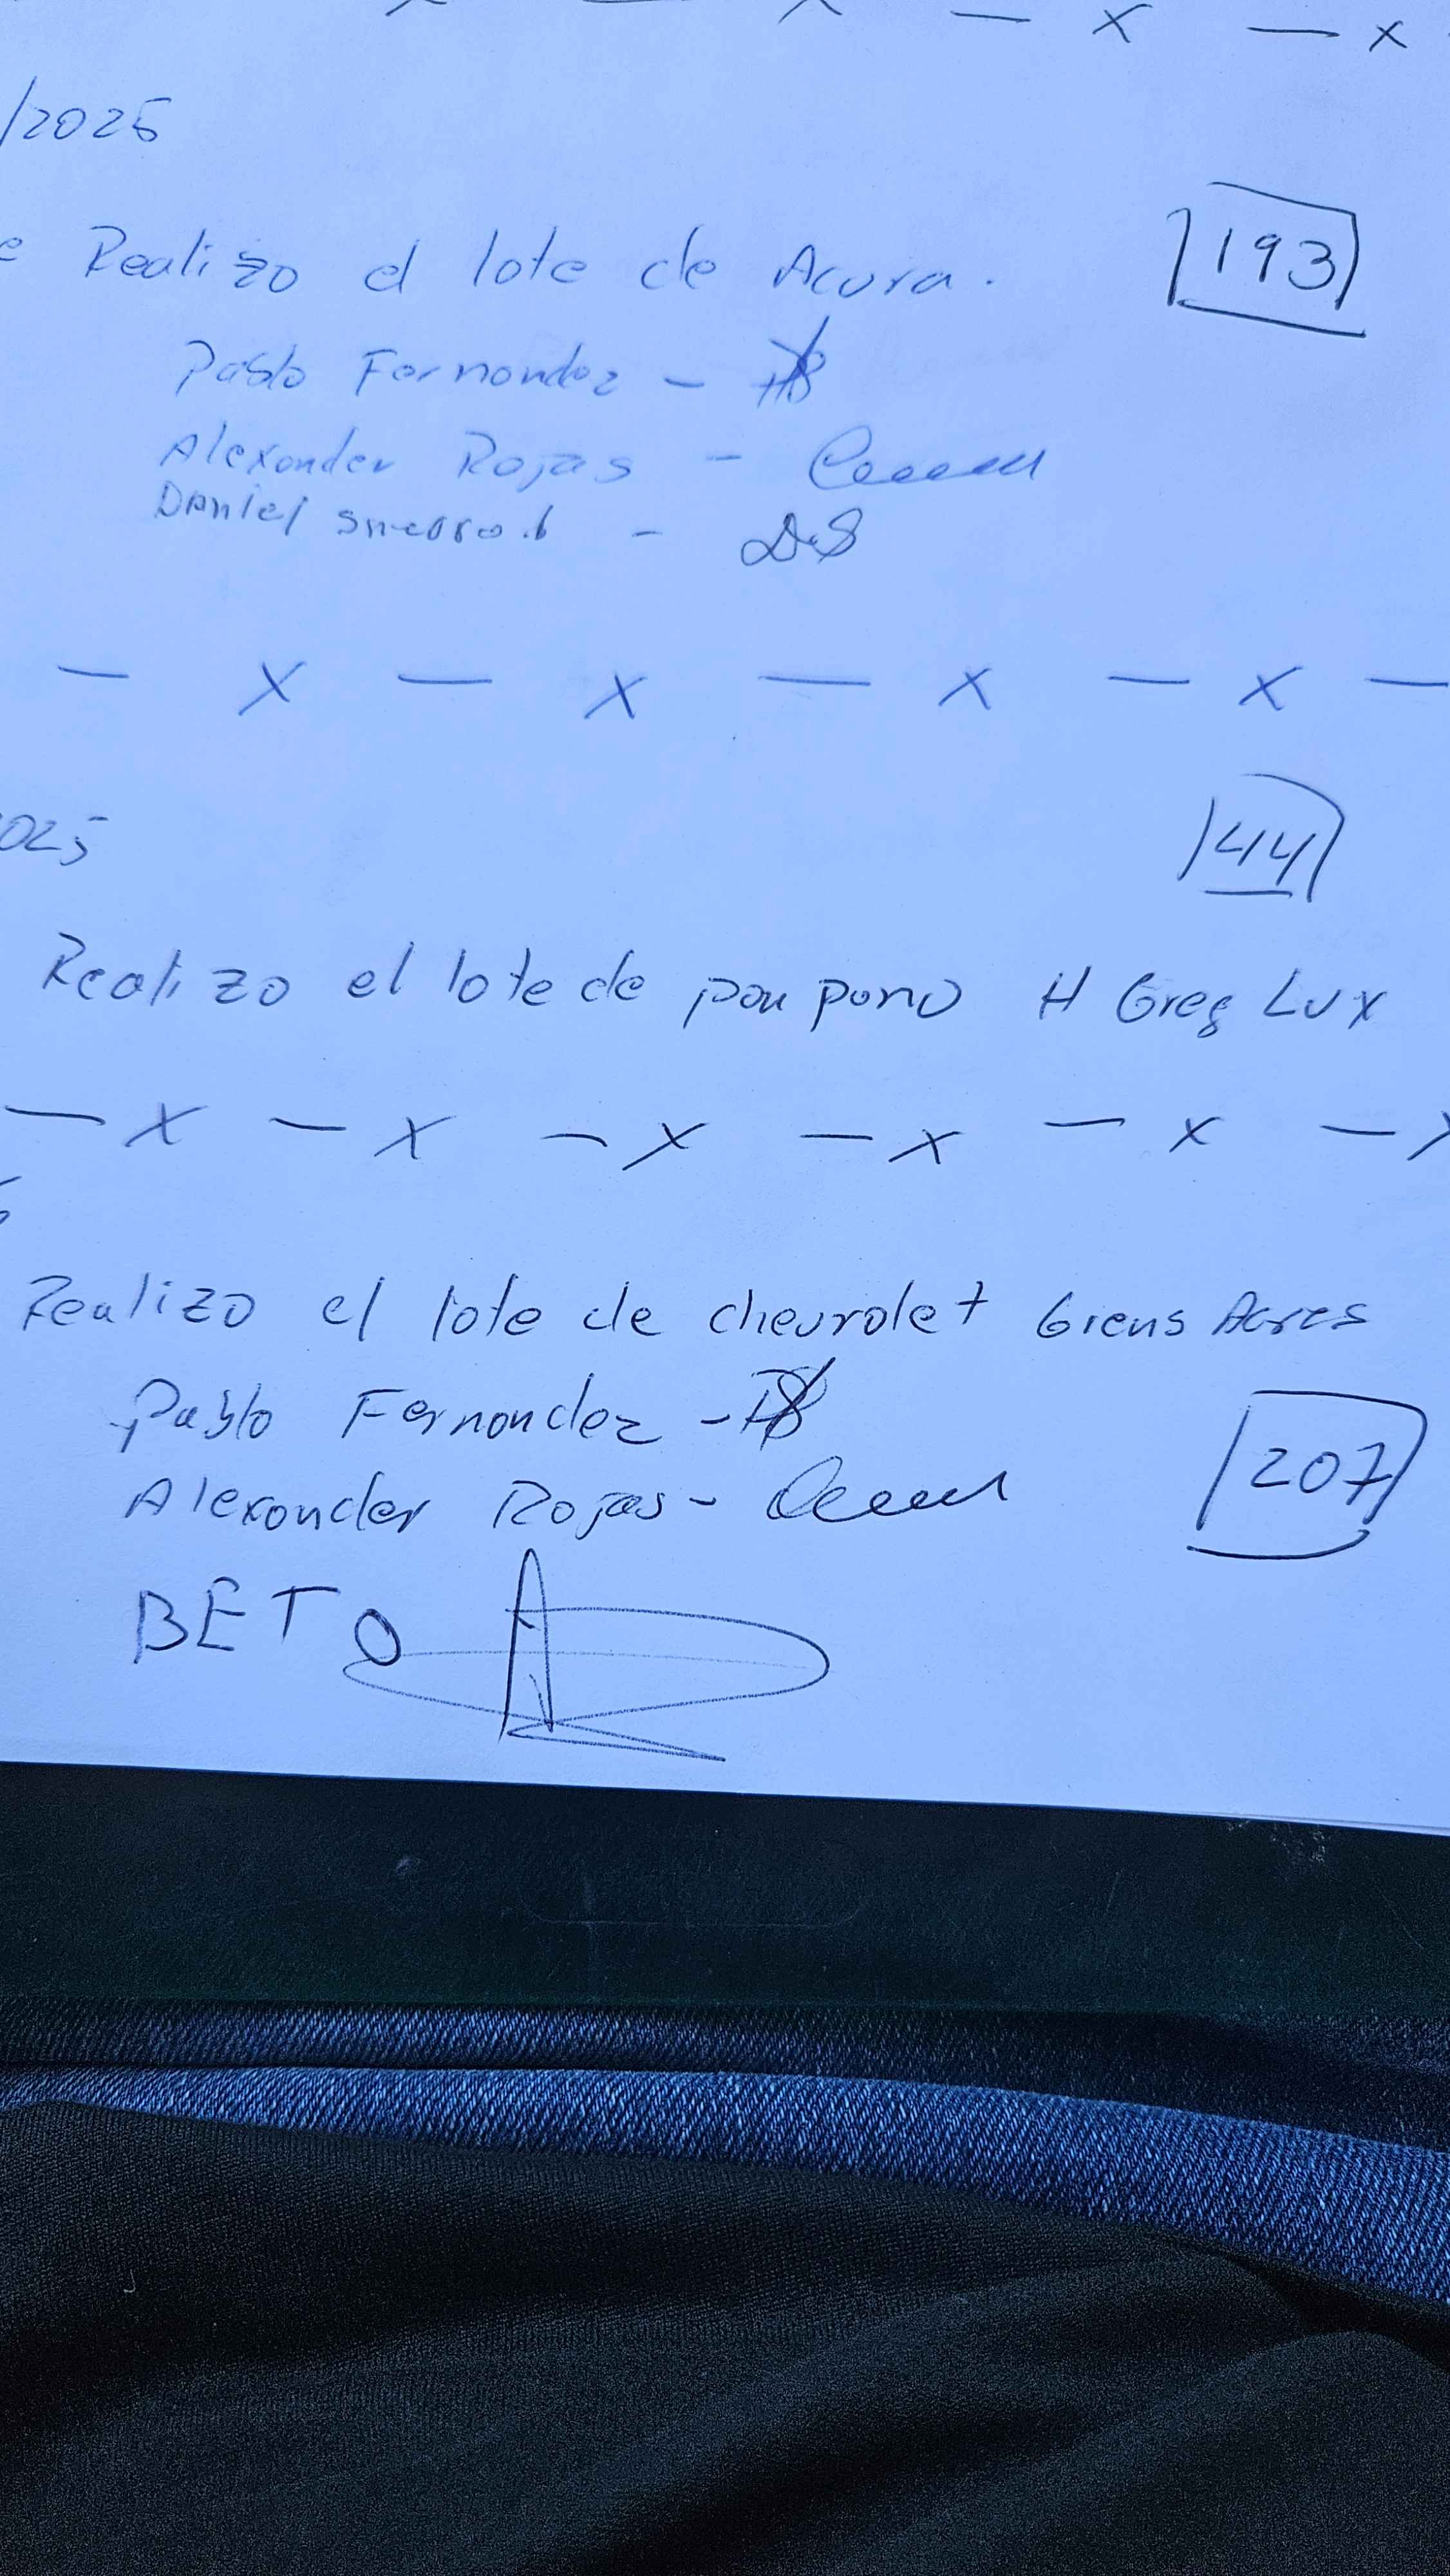 — x — x
/2025
e Realizo el lote de Acura.
193
Pablo Fernondez -
Alexonder Rojas -
Daniel - D.S
— x — x — x — x —
025
44
Realizo el lote de pompono H Greg Lux
— x — x — x — x — x — x
Realizo el lote de chevrolet Griens Acres
Pablo Fernondez -
207
Alexonder Rojas -
BETO